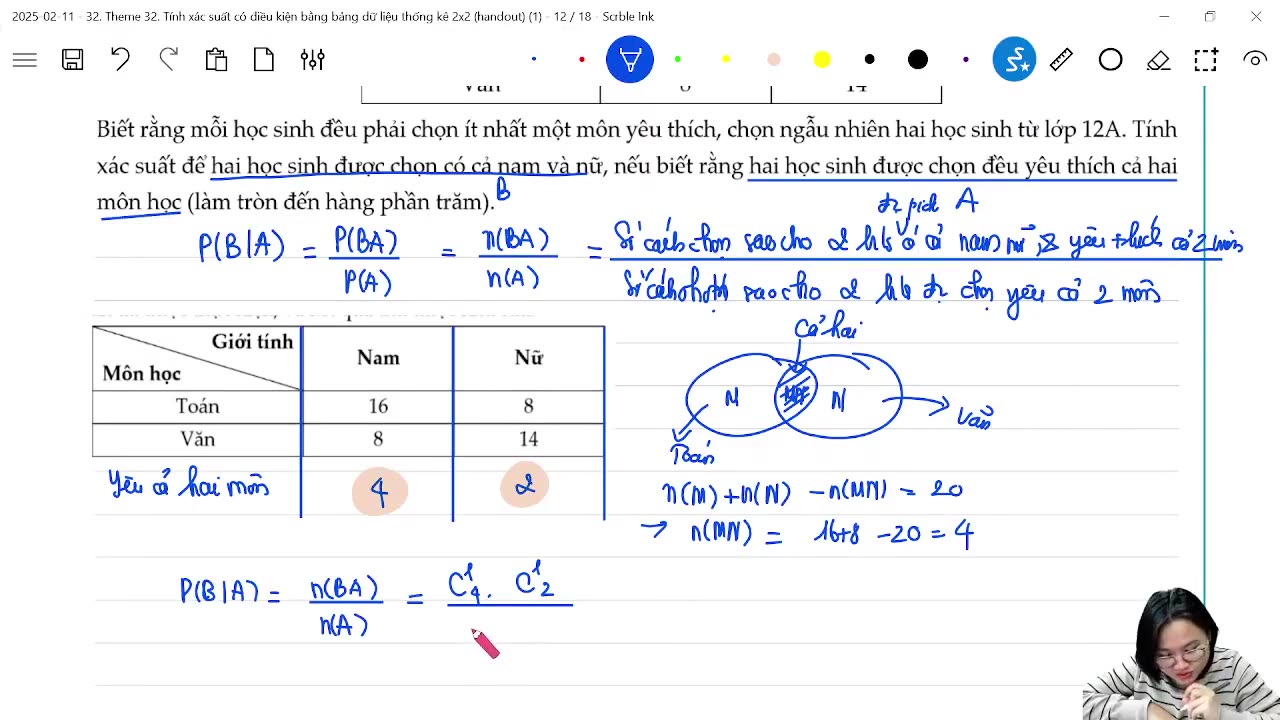 2025-02-11 - 32. Theme 32. Tính xác suất có điều kiện bằng bảng dữ liệu thống kê 2x2 (handout) (1) - 12 / 18 - Scrble Ink
Văn 8 14
Biết rằng mỗi học sinh đều phải chọn ít nhất một môn yêu thích, chọn ngẫu nhiên hai học sinh từ lớp 12A. Tính
xác suất để hai học sinh được chọn có cả nam và nữ, nếu biết rằng hai học sinh được chọn đều yêu thích cả hai
môn học (làm tròn đến hàng phần trăm).
B
A
P(B|A) = P(BA) / P(A) = n(BA) / n(A) =
sao cho 2 hs có cả nam nữ, 2 yêu thích cả 2 môn
sao cho 2 hs chọn yêu cả 2 môn
Giới tính
Môn học Nam Nữ
Toán 16 8
Văn 8 14
Yêu cả hai môn 4 2
Cả hai
M N
Văn
Toán
n(M) + n(N) - n(MN) = 20
→ n(MN) = 16+8 - 20 = 4
P(B|A) = n(BA) / n(A) = C¹₄ . C¹₂